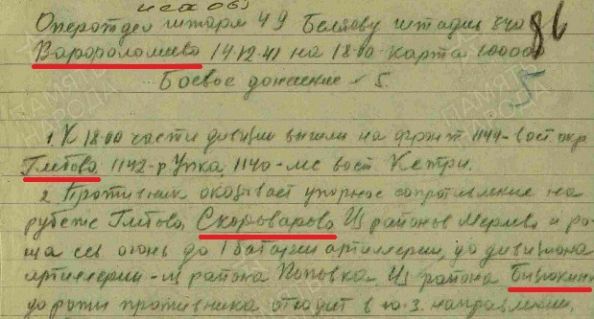 исх 05
Оперотдел штарм 49 Беляеву штадив 340 86
Варфоломеево 14.12.41 на 18-00 карта 100000
Боевое донесение 5. 5
1. К 18-00 части дивизии вышли на фронт 1144- вост окр
Глебова, 1142-р Упка, 1140- вост Кетри.
2. Противник оказывает упорное сопротивление на
рубеже Глебово, Скороварово Из районов и ро-
ща сев огонь до 1 батареи артиллерии, до дивизиона
артиллерии - из района Поповка Из района
до роты противника отходит в ю.з. направлении.
ПАМЯТЬ НАРОДА